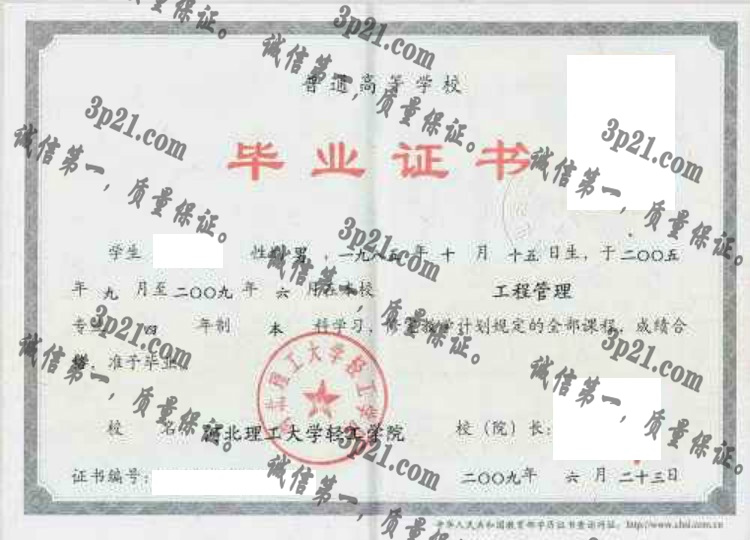 普通高等学校
毕业证书
学生 性别 男，一九八五年 十 月 十五日生，于二〇〇五
年 九 月至二〇〇九年 六 月在本校 工程管理
专业 四 年制 本 科学习，修完教学计划规定的全部课程，成绩合
格，准予毕业。
河北理工大学轻工学院
校 名：河北理工大学轻工学院 校（院）长：
证书编号： 二〇〇九年 六 月 二十三日
中华人民共和国教育部学历证书查询网址：http://www.chsi.com.cn
3p21.com
诚信第一，质量保证。
3p21.com
诚信第一，质量保证。
3p21.com
诚信第一，质量保证。
3p21.com
诚信第一，质量保证。
3p21.com
诚信第一，质量保证。
3p21.com
诚信第一，质量保证。
3p21.com
诚信第一，质量保证。
3p21.com
诚信第一，质量保证。